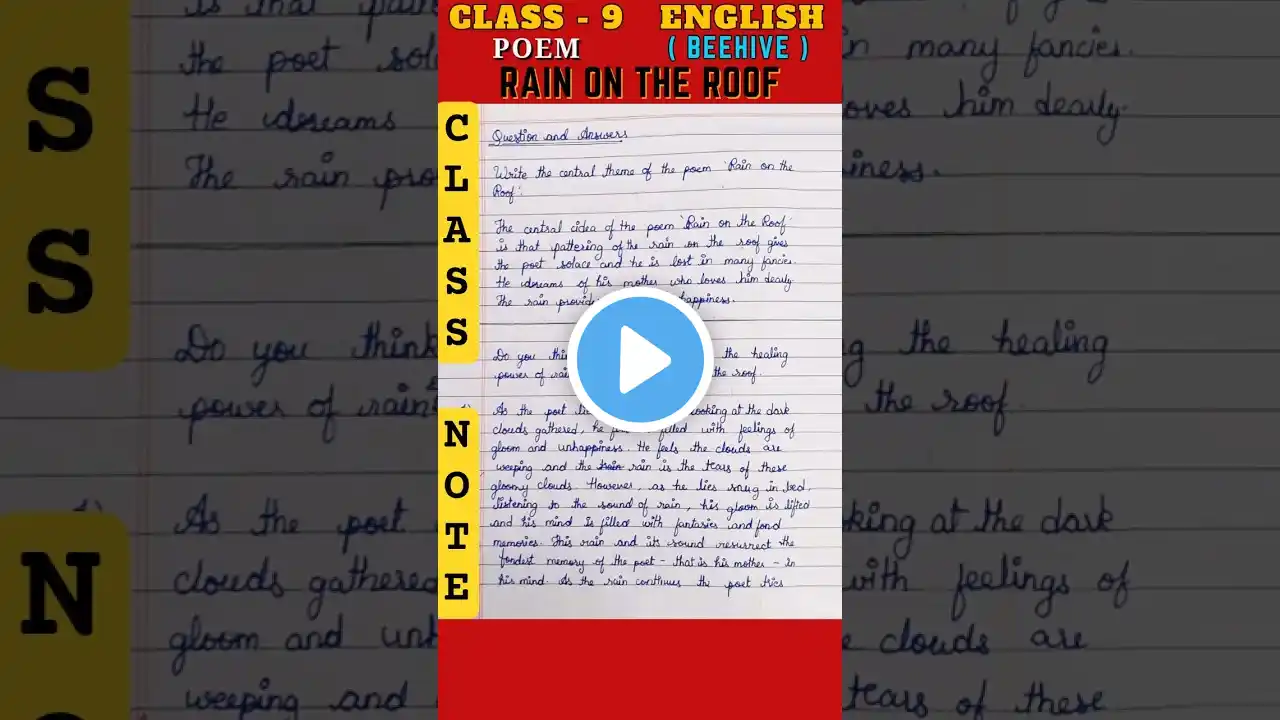 CLASS - 9 ENGLISH
POEM ( BEEHIVE )
RAIN ON THE ROOF
CLASS NOTE
Question and Answers
Write the central theme of the poem 'Rain on the
Roof'.
The central idea of the poem 'Rain on the Roof'
is that pattering of the rain on the roof gives
the poet solace and he is lost in many fancies.
He dreams of his mother who loves him dearly.
The rain happiness.
Do you the healing
power of the roof.
As the poet looking at the dark
clouds gathered, he filled with feelings of
gloom and unhappiness. He feels the clouds are
weeping and the rain is the tears of these
gloomy clouds. However, as he lies snug in bed,
listening to the sound of rain, his gloom is lifted
and his mind is filled with fantasies and fond
memories. This rain and its sound resurrect the
fondest memory of the poet - that is his mother - in
his mind. As the rain continues the poet tries